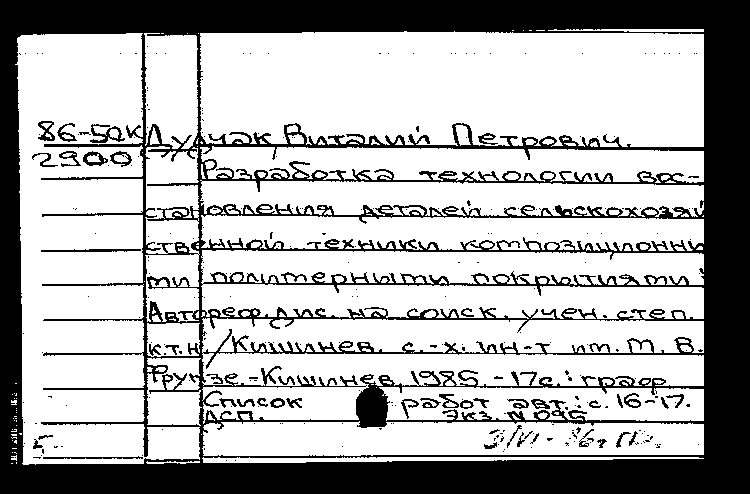 86-50к Дудчак, Виталий Петрович.
2900
Разработка технологии вос-
становления деталей сельскохозяй
ственной техники композиционны
ми полимерными покрытиями :
Автореф. дис. на соиск. учен. степ.
к.т.н. /Кишинев. с.-х. ин-т им. М. В.
Фрунзе.-Кишинев, 1985. -17с.: граф.
Список работ авт.: с. 16-17.
ДСП. Экз. N 096.
5.